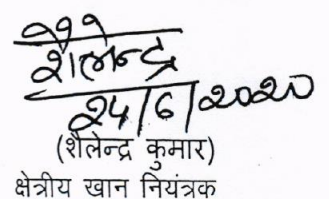 शैलेन्द्र
24/6/2020
(शैलेन्द्र कुमार)
क्षेत्रीय खान नियंत्रक